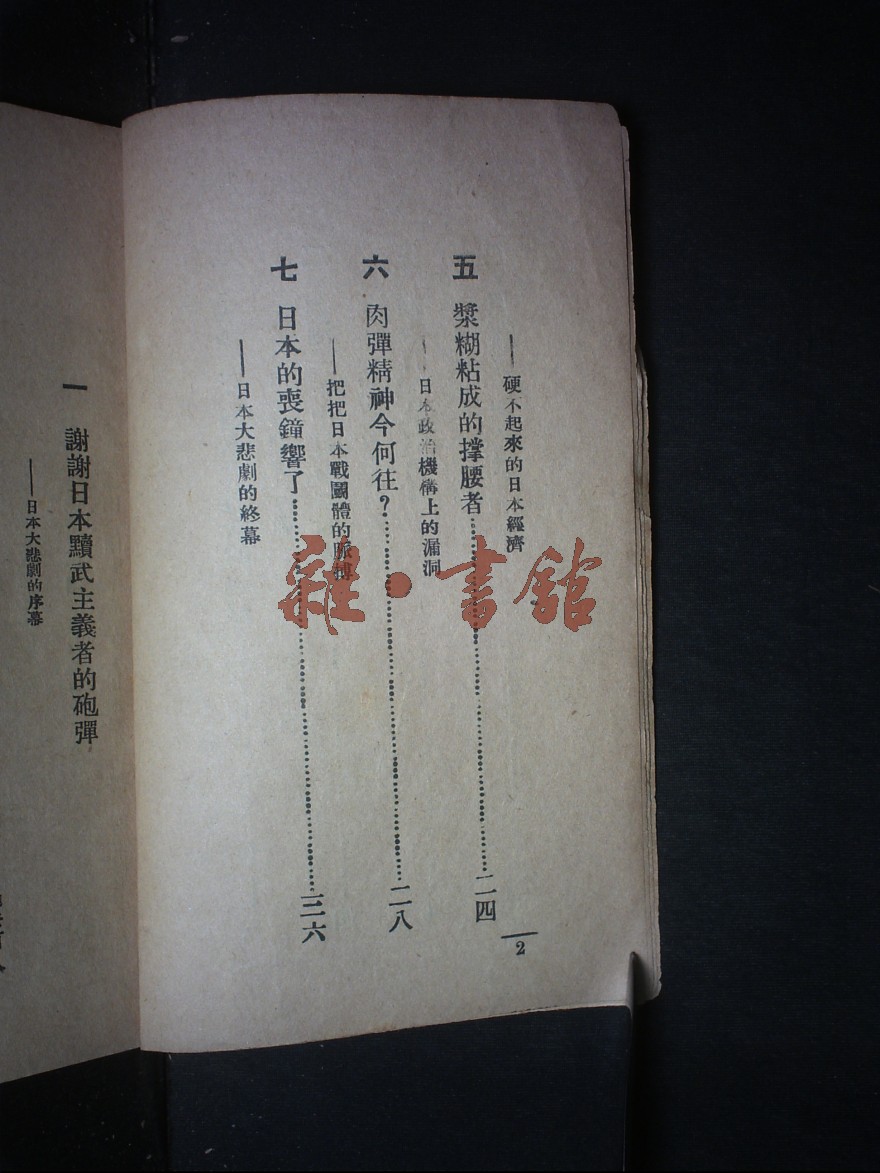 ——硬不起來的日本經濟
五 漿糊粘成的撐腰者……二四
——日本政治機構上的漏洞
六 肉彈精神今何往？……二八
——把把日本戰鬭體的脈搏
七 日本的喪鐘響了……三六
——日本大悲劇的終幕
2
雜·書館
一 謝謝日本黷武主義者的砲彈
——日本大悲劇的序幕